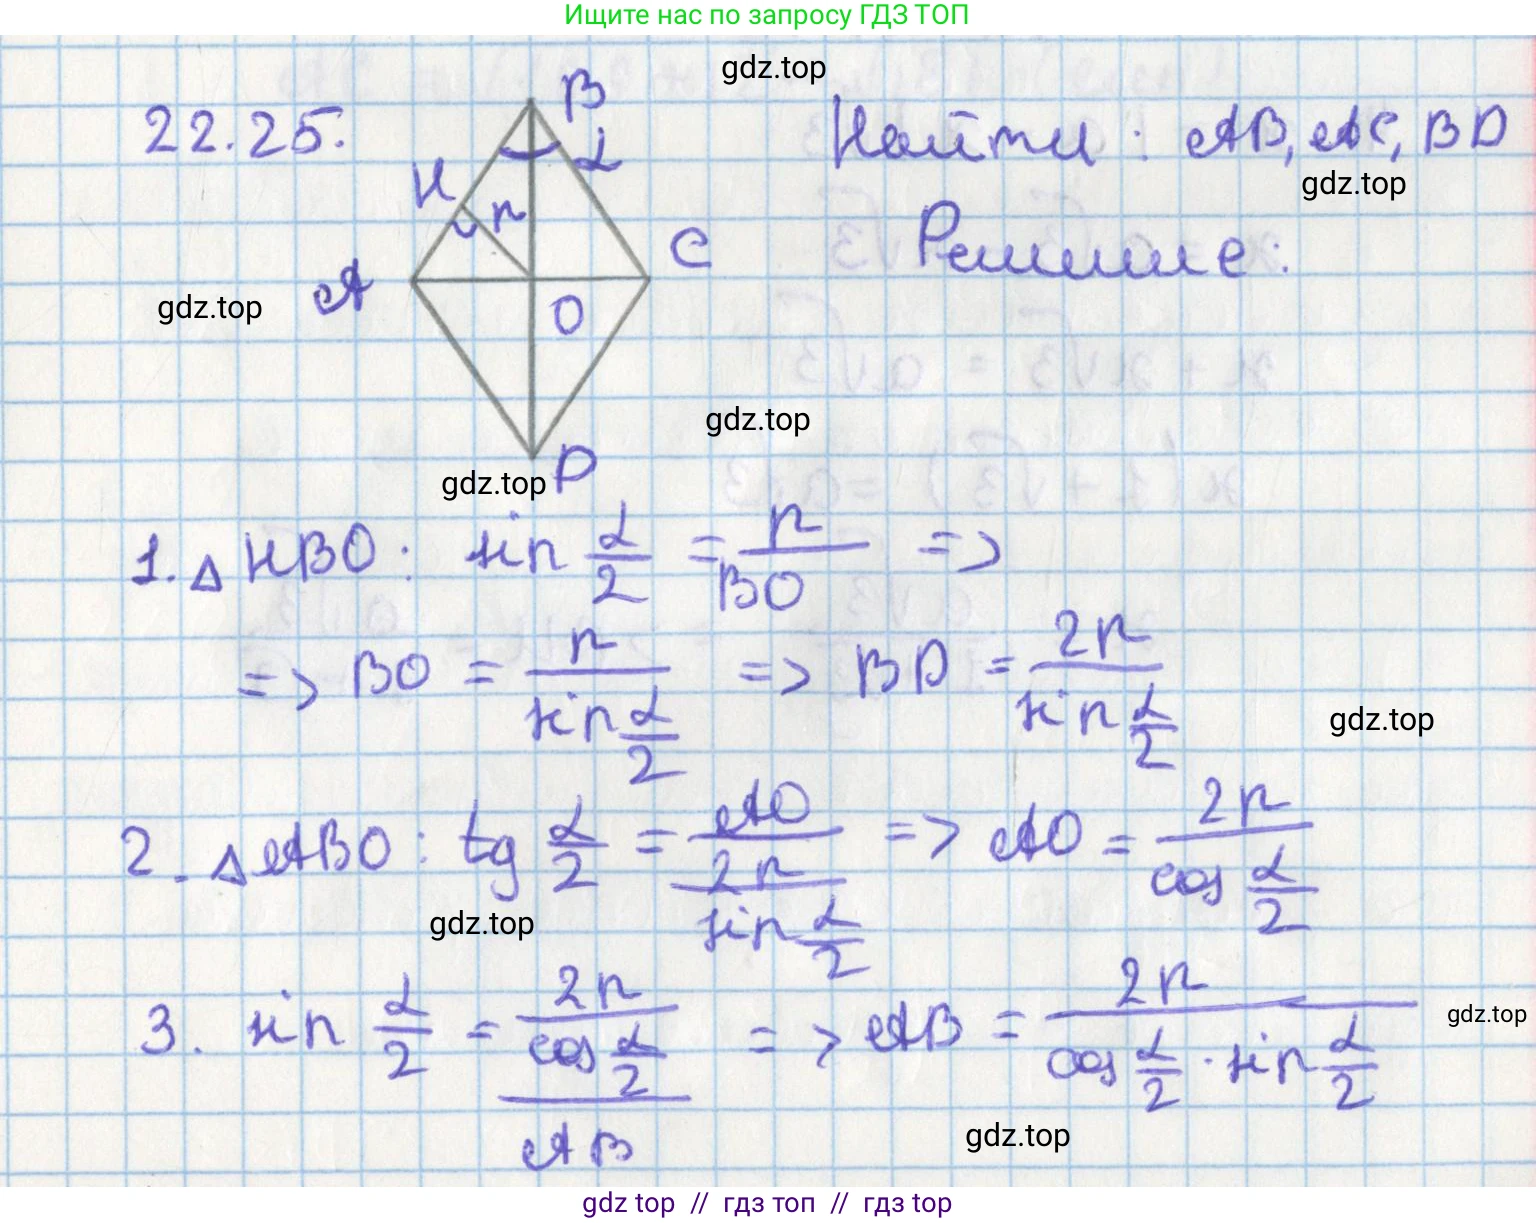 Ищите нас по запросу ГДЗ ТОП
gdz.top
22.25.
B
α
H
r
A
C
O
D
Найти : AB, AC, BD
gdz.top
Решение:
gdz.top
gdz.top
gdz.top
1. △ HBO: sin α/2 = r/BO =>
=> BO = r/(sin α/2) => BD = 2r/(sin α/2)
gdz.top
2. △ABO: tg α/2 = AO/(2r/(sin α/2)) => AO = 2r/(cos α/2)
gdz.top
3. sin α/2 = (2r/(cos α/2))/AB => AB = 2r/(cos α/2 · sin α/2)
gdz.top
gdz.top
gdz top // гдз топ // гдз top